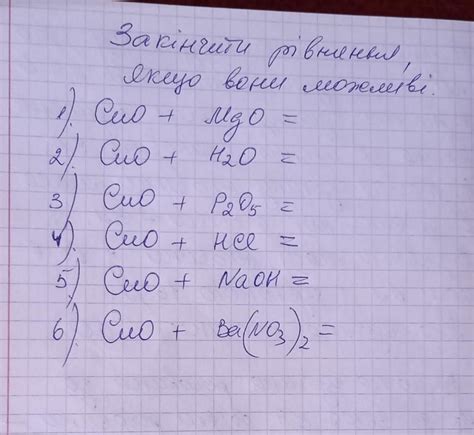 Закінчити рівняння,
якщо вони можливі.
1). CuO + MgO =
2). CuO + H2O =
3) CuO + P2O5 =
4). CuO + HCl =
5). CuO + NaOH =
6). CuO + Ba(NO3)2 =